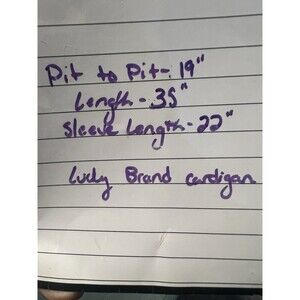 Pit to Pit-19"
Length-35"
Sleeve Length-22"
Lucky Brand cardigan